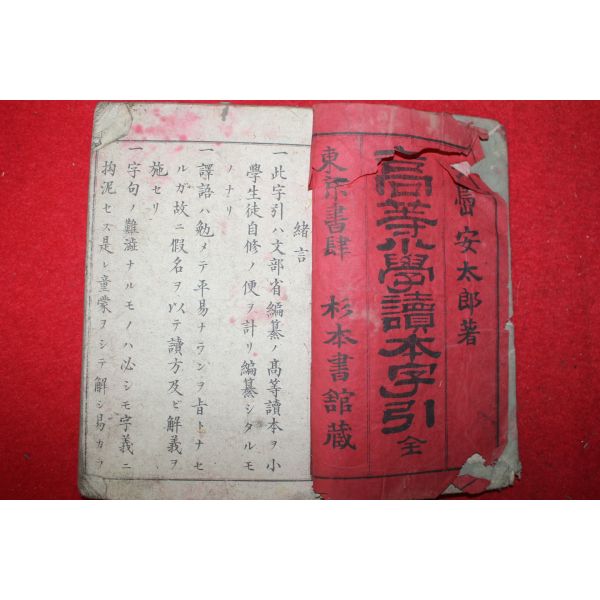 嵒安太郎著
高等小學讀本字引 全
東京書肆 杉本書舘藏
緒言
一此字引ハ文部省編纂ノ高等讀本ヲ小
學生徒自修ノ便ヲ計リ編纂シタルモ
ノナリ
一譯語ハ勉メテ平易ナランヲ旨トナセ
ルガ故ニ假名ヲ以テ讀方及ビ解義ヲ
施セリ
一字句ノ難澁ナルモノハ必シモ字義ニ
拘泥セス是レ童蒙ヲシテ解シ易カラ